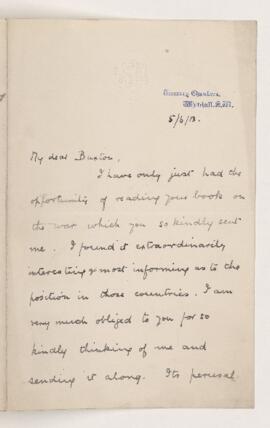 Treasury Chambers,
Whitehall, S.W.
5/6/13.
My dear Buxton,
I have only just had the
opportunity of reading your book on
the war which you so kindly sent
me. I found it extraordinarily
interesting & most informing as to the
position in those countries. I am
very much obliged to you for so
kindly thinking of me and
sending it along. Its perusal